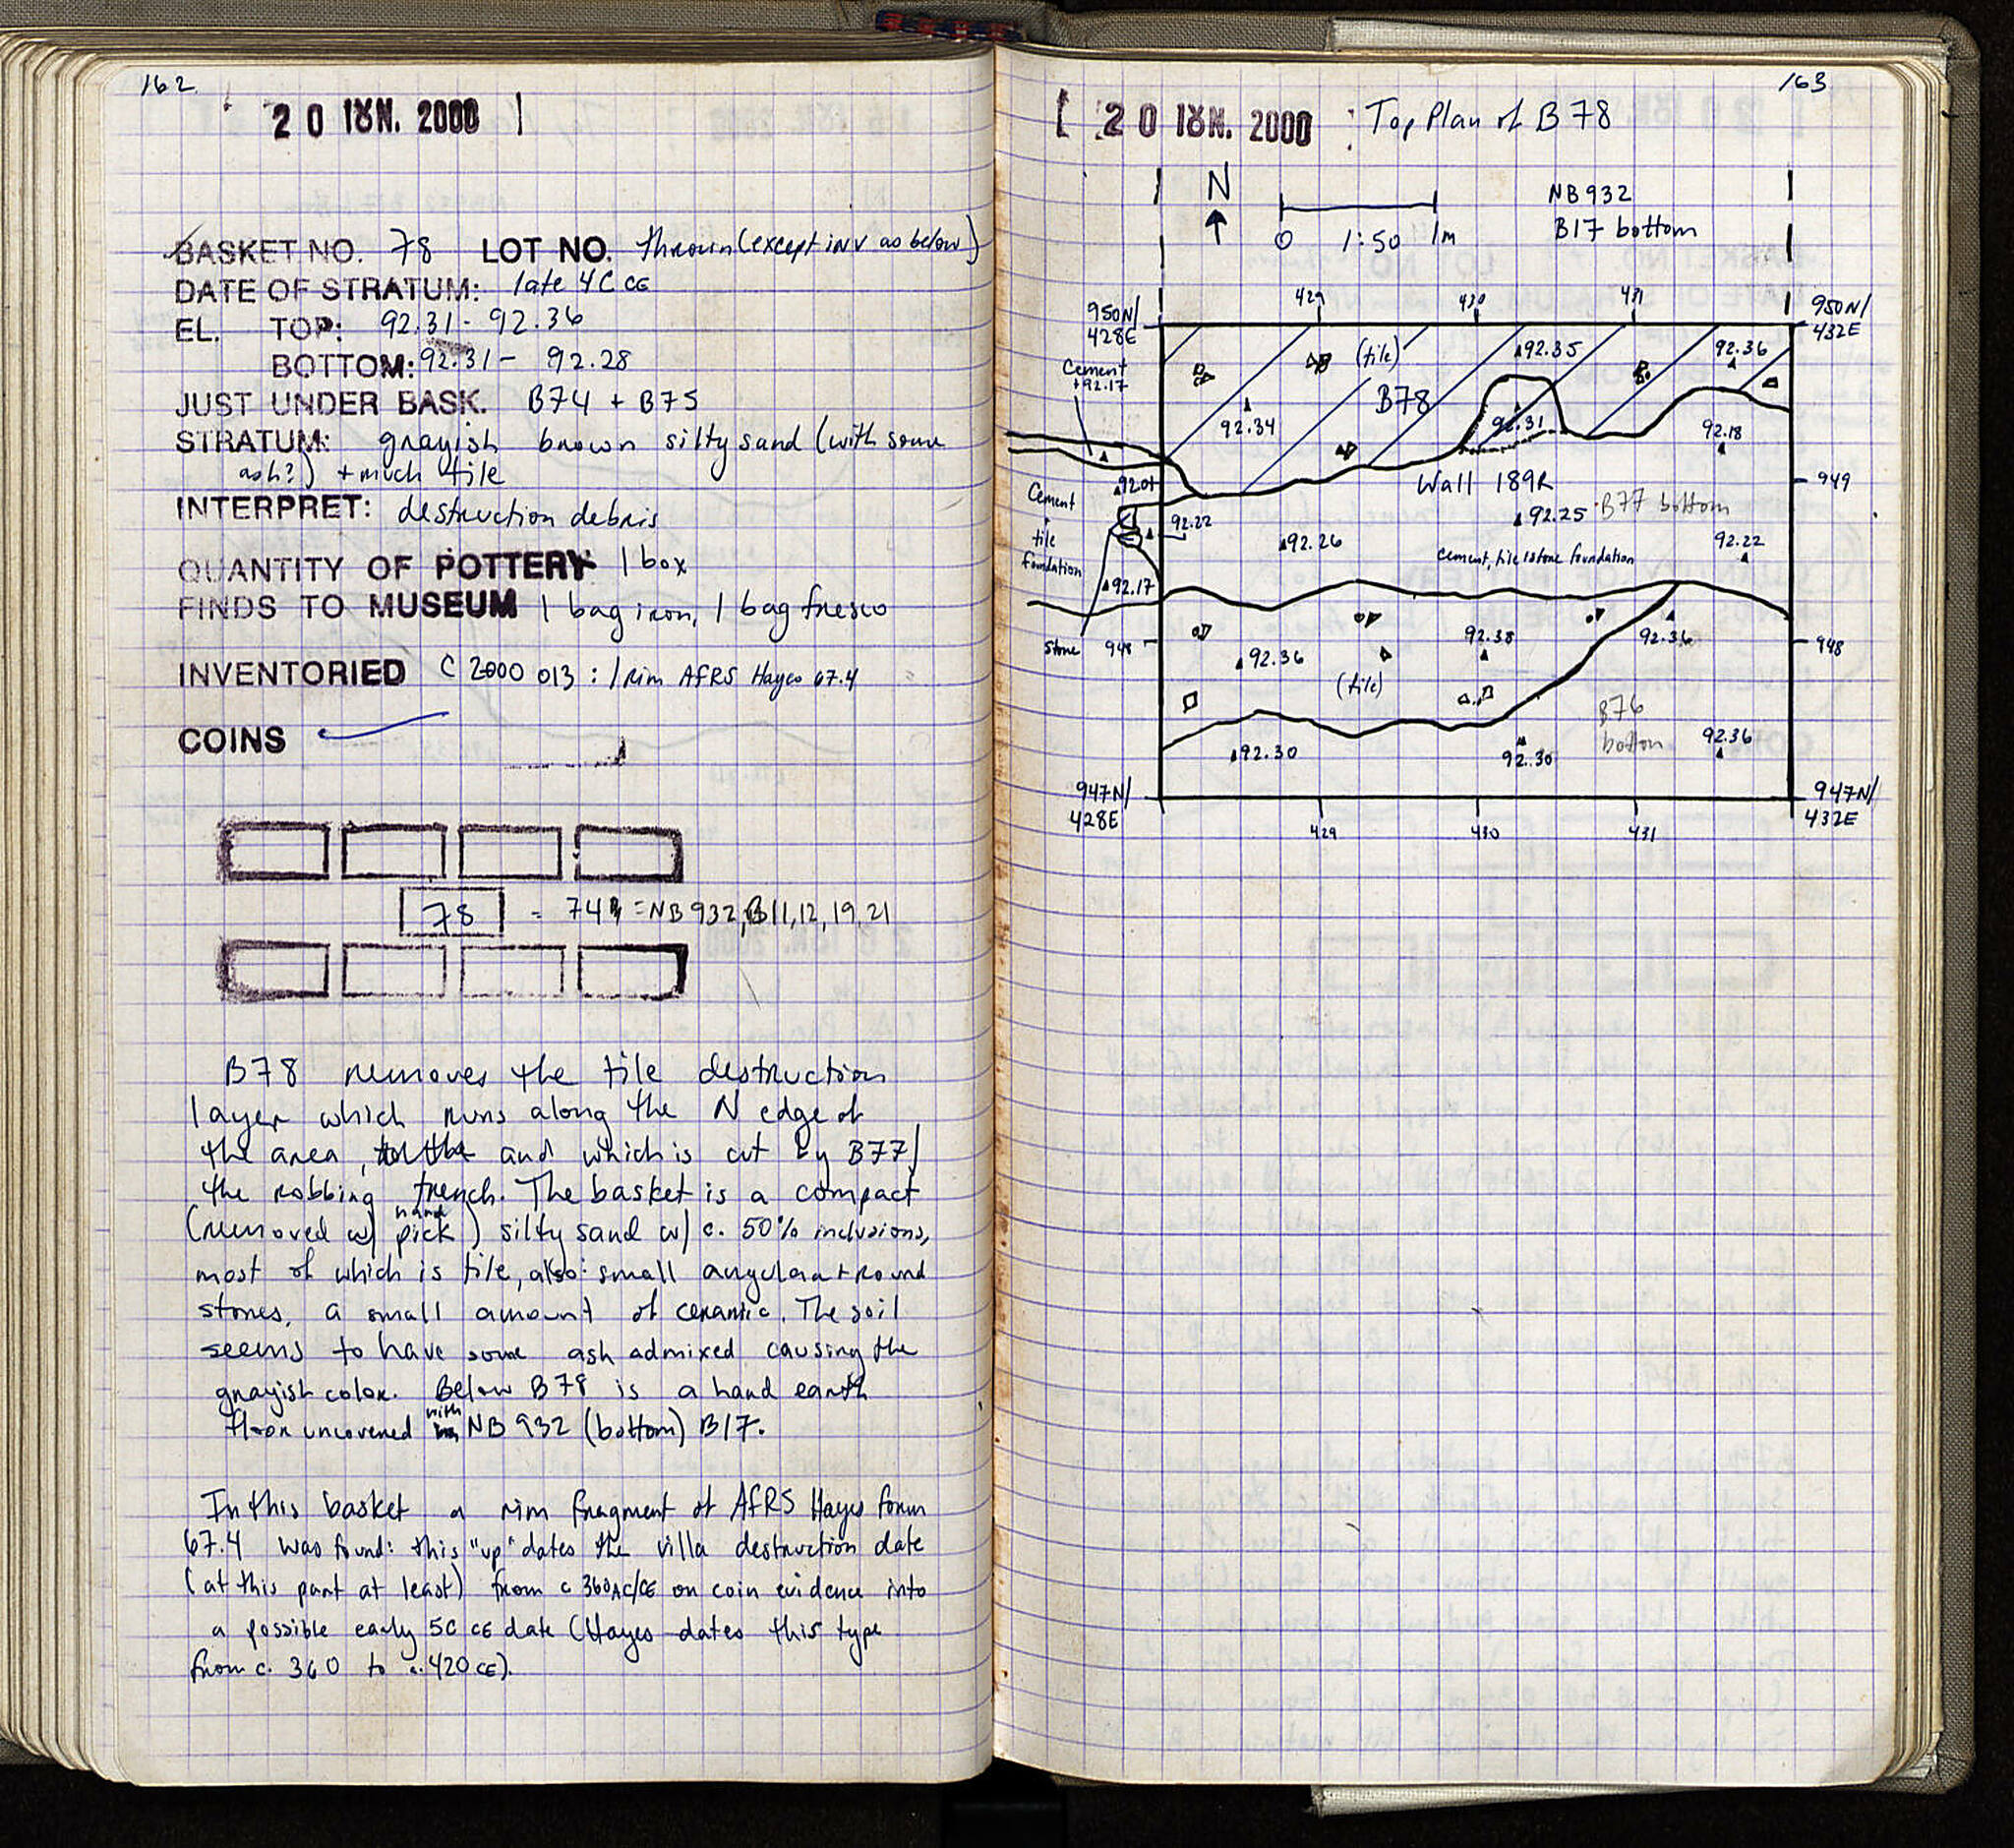 162
20 ΙΟΥΝ. 2000
BASKET NO. 78 LOT NO. thrown (except inv as below)
DATE OF STRATUM: late 4C CE
EL. TOP: 92.31 - 92.36
BOTTOM: 92.31 - 92.28
JUST UNDER BASK. B74 + B75
STRATUM: grayish brown silty sand (with some
ash?) + much tile
INTERPRET: destruction debris
QUANTITY OF POTTERY 1 box
FINDS TO MUSEUM 1 bag iron, 1 bag fresco
INVENTORIED C 2000 013 : 1 rim AfRS Hayes 67.4
COINS
78 = 74 = NB 932, B11, 12, 19, 21
B78 removes the tile destruction
layer which runs along the N edge of
the area, and which is cut by B77/
the robbing trench. The basket is a compact
(removed w/ hand pick) silty sand w/ c. 50% inclusions,
most of which is tile, also: small angular + round
stones, a small amount of ceramic. The soil
seems to have some ash admixed causing the
grayish color. Below B78 is a hard earth
floor uncovered with NB 932 (bottom) B17.
In this basket a rim fragment of AfRS Hayes form
67.4 was found: this "up" dates the villa destruction date
(at this part at least) from c 360 AC/CE on coin evidence into
a possible early 5C CE date (Hayes dates this type
from c. 360 to c. 420 CE).
163
20 ΙΟΥΝ. 2000 Top Plan of B78
N
0 1:50 1m
NB932
B17 bottom
950N/
428E
429
430
431
950N/
432E
Cement
+92.17
(tile)
92.35
92.36
B78
92.34
92.31
92.18
92.01
Wall 189R
949
Cement
+
tile
foundation
92.22
92.25
B77 bottom
92.26
cement, tile + stone foundation
92.22
92.17
stone
948
92.36
92.38
92.36
948
(tile)
B76
bottom
92.30
92.30
92.36
947N/
428E
429
430
431
947N/
432E